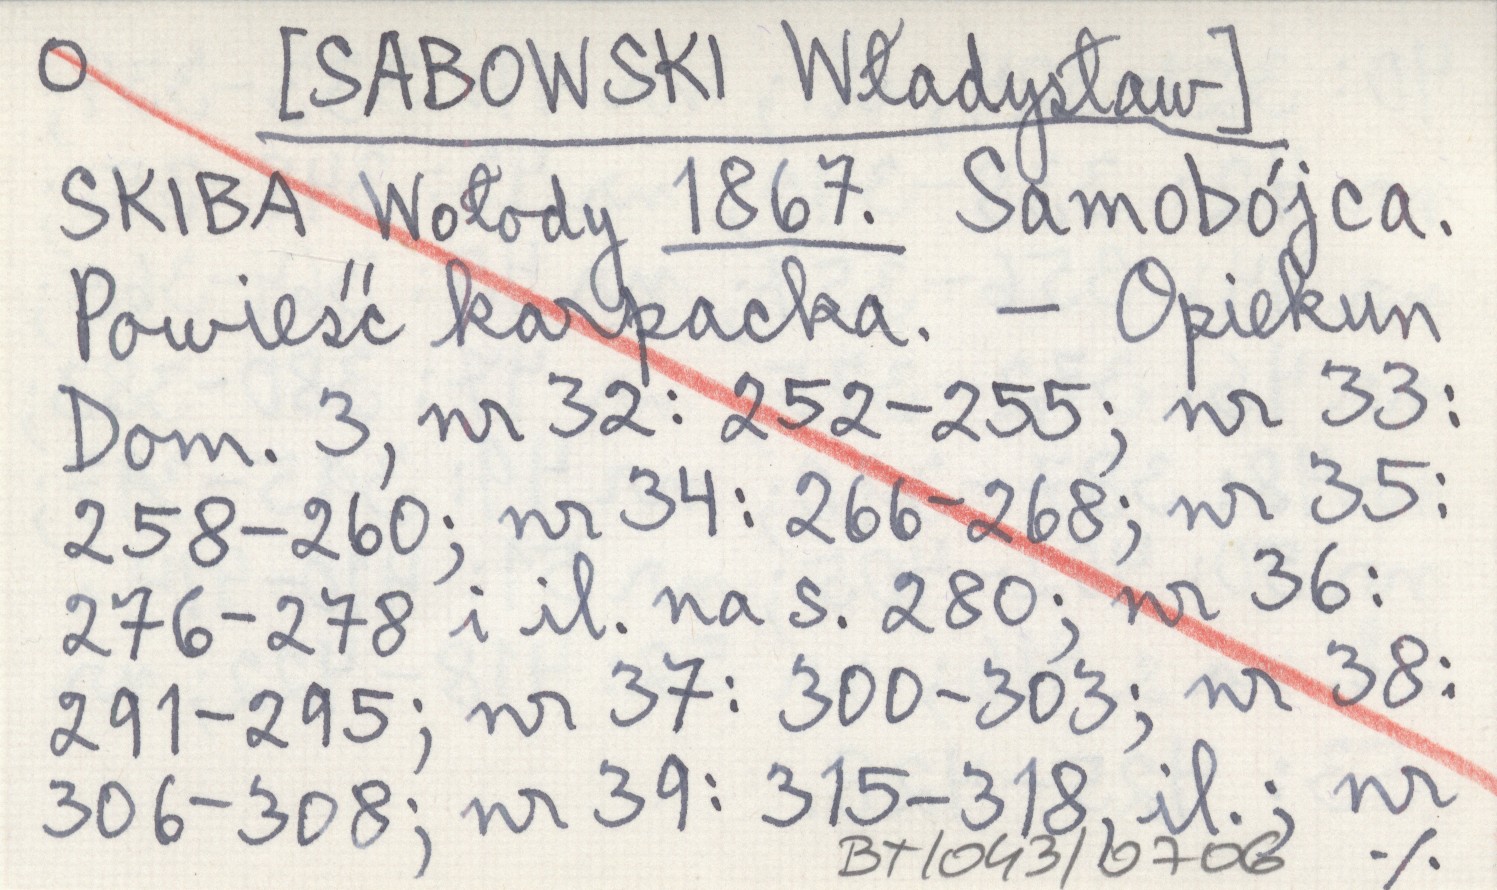 O [SABOWSKI Władysław]
SKIBA Wołody 1867. Samobójca.
Powieść karpacka. — Opiekun
Dom. 3, nr 32: 252-255; nr 33:
258-260; nr 34: 266-268; nr 35:
276-278 i il. na s. 280; nr 36:
291-295; nr 37: 300-303; nr 38:
306-308; nr 39: 315-318, il.; nr
BT/043/0706 ./.